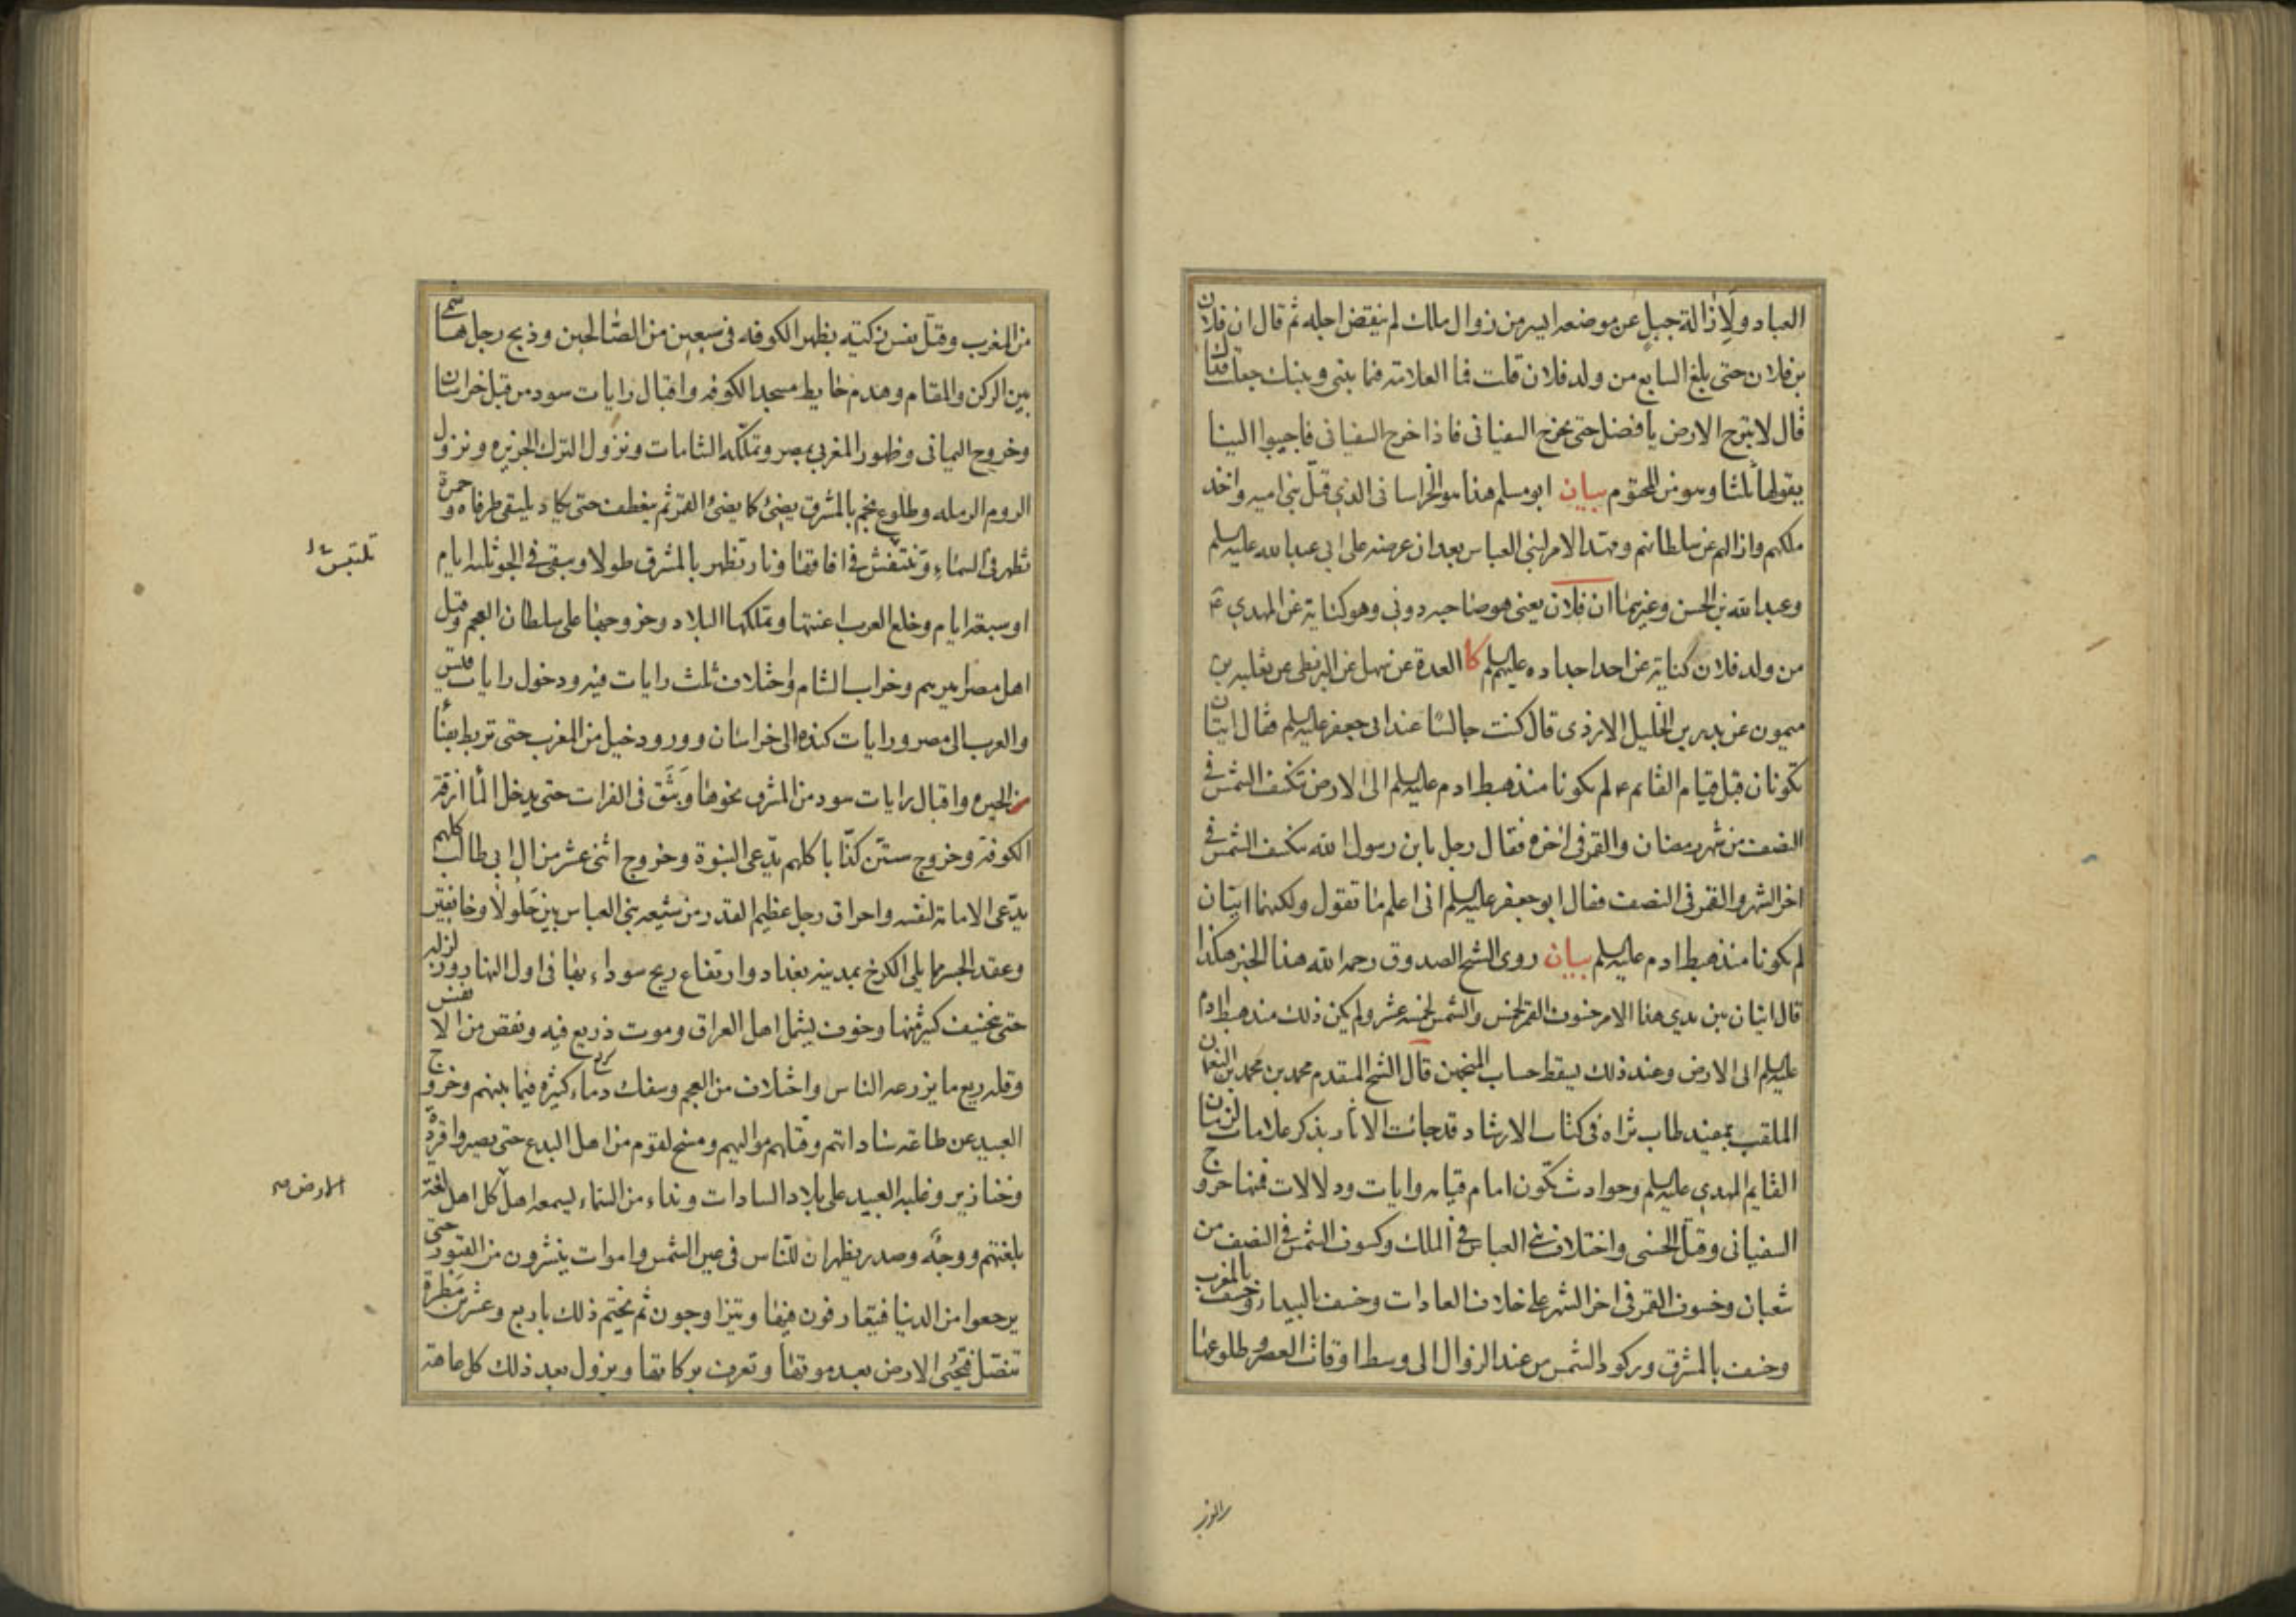 العباد ولازالة جبل عن موضعه ايسر من زوال ملك لم ينقض اجله ثم قال ان فلان
بن فلان حتى بلغ السابع من ولد فلان قلت فما العلامة فيما بيني وبينك جعلت فداك
قال لا تبرح الارض يا فضل حتى يخرج السفياني فاذا خرج السفياني فاجيبوا الينا
يقولها ثلثا وهو من المحتوم بيان ابو مسلم هذا هو الخراساني الذي قتل بني اميه واخذ
ملكهم وازالهم عن سلطانهم ومهد الامر لبني العباس بعد ان عرضه على ابي عبد الله عليه السلم
وعبد الله بن الحسن وغيرهما ان فلان يعني هو صاحبه دوني وهو كناية عن المهدي ع
من ولد فلان كناية عن احد اجداده عليهم السلم كا العدة عن سهل عن البزنطي عن ثعلبه بن
ميمون عن بدر بن الخليل الازدي قال كنت جالسا عند ابي جعفر عليه السلم فقال ايتان
تكونان قبل قيام القائم ع لم تكونا منذ هبط ادم عليه السلم الى الارض تنكسف الشمس في
النصف من شهر رمضان والقمر في اخره فقال رجل يا بن رسول الله تنكسف الشمس في
اخر الشهر والقمر في النصف فقال ابو جعفر عليه السلم اني اعلم ما تقول ولكنهما ايتان
لم تكونا منذ هبط ادم عليه السلم بيان روى الشيخ الصدوق رحمه الله هذا الخبر هكذا
قال ايتان بين يدي هذا الامر خسوف القمر لخمس والشمس لخمسة عشر ولم يكن ذلك منذ هبط ادم
عليه السلم الى الارض وعند ذلك يسقط حساب المنجمين قال الشيخ المقدم محمد بن محمد بن النعمان
الملقب بمفيد طاب ثراه في كتاب الارشاد قد جائت الاثار بذكر علامات لزمان
القايم المهدي عليه السلم وحوادث تكون امام قيامه وايات ودلالات فمنها خروج
السفياني وقتل الحسني واختلاف بني العباس في الملك وكسوف الشمس في النصف من
شعبان وخسوف القمر في اخر الشهر على خلاف العادات وخسف بالبيداء وخسف بالمغرب
وخسف بالمشرق وركود الشمس من عند الزوال الى وسط اوقات العصر وطلوعها
من المغرب وقتل نفس زكيته بظهر الكوفه في سبعين من الصالحين وذبح رجل هاشمي
بين الركن والمقام وهدم حايط مسجد الكوفه واقبال رايات سود من قبل خراسان
وخروج اليماني وظهور المغربي بمصر وتملكه الشامات ونزول الترك الجزيره ونزول
الروم الرمله وطلوع نجم بالمشرق يضئ كما يضئ القمر ثم ينعطف حتى يكاد يلتقي طرفاه وحمرة
تظهر في السماء وتنتفش في افاقها ونار تظهر بالمشرق طولا وتبقى في الجو ثلثه ايام
او سبعة ايام وخلع العرب اعنتها وتملكها البلاد وخروجها على سلطان العجم وقتل
اهل مصر اميرهم وخراب الشام واختلاف ثلث رايات فيه ودخول رايات قيس
والعرب الى مصر ورايات كنده الى خراسان وورود خيل من المغرب حتى تربط بفنا
الحيره واقبال رايات سود من المشرق نحوها وبثق في الفرات حتى يدخل الما ازقة
الكوفة وخروج ستين كذابا كلهم يدعي النبوة وخروج اثنى عشر من ال ابي طالب كلهم
يدعي الامامة لنفسه واحراق رجل عظيم القدر من شيعه بني العباس بين جلولا وخانقين
وعقد الجسر مما يلي الكرخ بمدينه بغداد وارتفاع ريح سوداء بها في اول النهار وزلزله
حتى ينخسف كثير منها وخوف يشمل اهل العراق وموت ذريع فيه ونقص من الانفس
وقله ريع ما يزرعه الناس واختلاف من العجم وسفك دماء كثيره فيما بينهم وخروج
العبيد عن طاعة ساداتهم وقتلهم مواليهم ومسخ لقوم من اهل البدع حتى يصيروا قردة
وخنازير وغلبه العبيد على بلاد السادات ونداء من السماء يسمعه اهل كل اهل لغة
بلغتهم ووجه وصدر يظهران للناس في عين الشمس واموات ينشرون من القبور حتى
يرجعوا من الدنيا فيتعارفون فيها ويتزاوجون ثم يختم ذلك باربع وعشرين مطرة
تتصل فتحيى الارض بعد موتها وتعرف بركاتها ويزول بعد ذلك كل عاهة
الارض